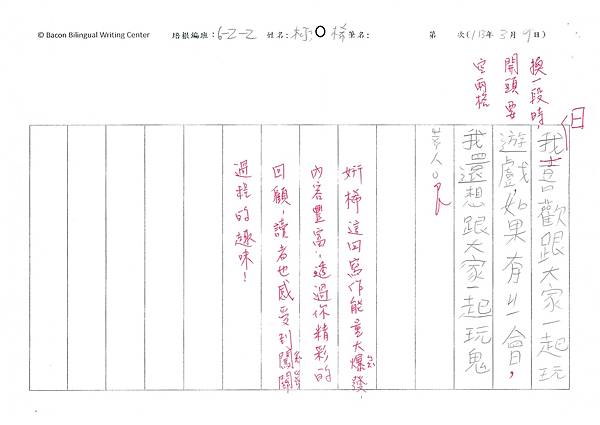 © Bacon Bilingual Writing Center 培根編班:6-Z-2 姓名:柯○梯 筆名: 第 次(113年3月9日)
換一段時,
開頭要
空兩格
我喜歡跟大家一起玩
遊戲,如果有ㄐ一會,
我還想跟大家一起玩鬼
當人。
妍梯這回寫作能量大爆發,
內容豐富,透過你精彩的
回顧,讀者也感受到闖關
過程的趣味!